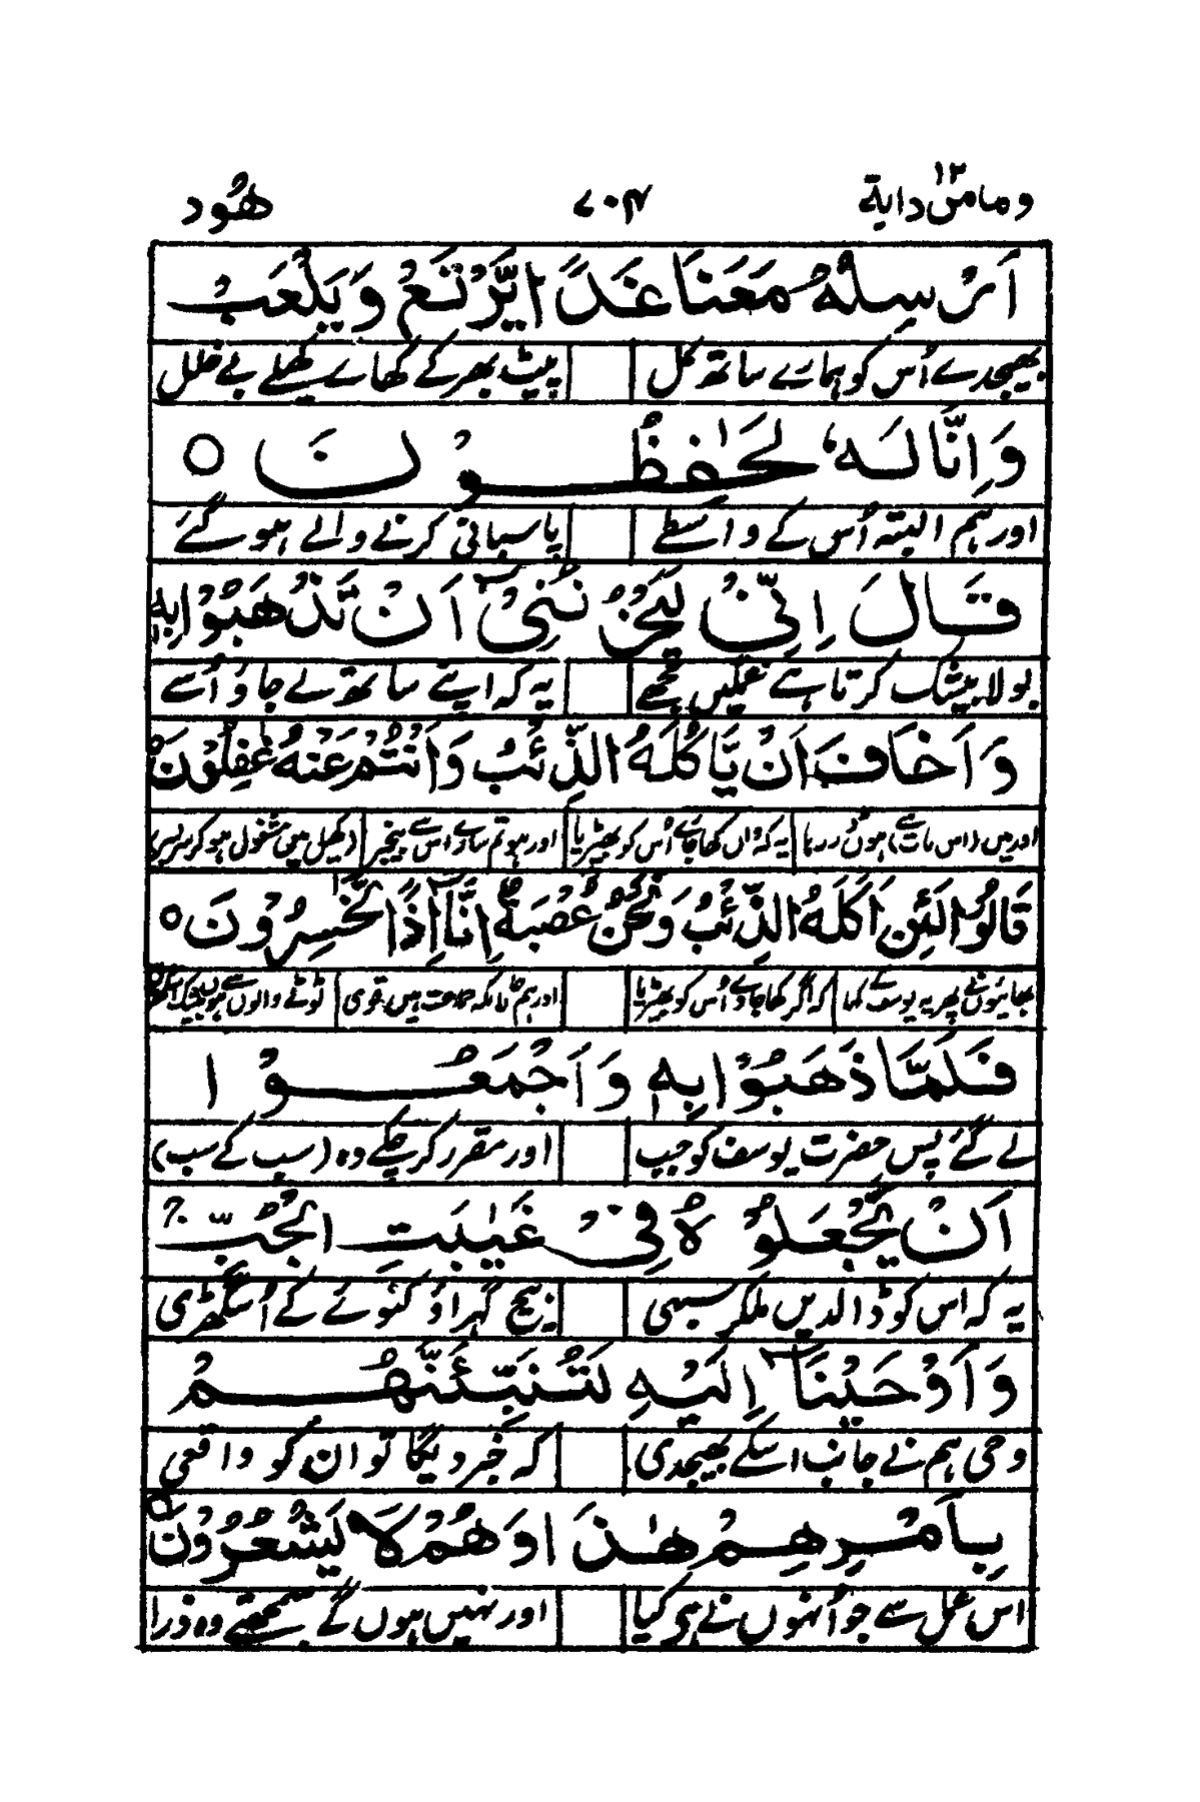 ومامن دابة ۱۲ ۷۰۴ هُود
اَرْسِلْهُ مَعَنَا غَدًا يَّرْتَعْ وَيَلْعَبْ
بھیجدے اُس کو ہمارے ساتھ کل پیٹ بھر کے کھارے کھیلے بے خلل
وَاِنَّا لَهٗ لَحٰفِظُوْنَ ○
اور ہم البتہ اُس کے واسطے پاسبانی کرنے والے ہو گئے
قَالَ اِنِّىْ لَيَحْزُنُنِىْٓ اَنْ تَذْهَبُوْا بِهٖ
بولا بیشک کرتا ہے غمگیں مجھے یہ کہ اپنے ساتھ لے جاؤ اُسے
وَاَخَافُ اَنْ يَّاْكُلَهُ الذِّئْبُ وَاَنْتُمْ عَنْهُ غٰفِلُوْنَ
اور میں (اس بات سے) ہوں ڈر رہا یہ کہ واں کھا جائے اُس کو بھیڑیا اور ہو تم سارے اس سے بیخبر (کھیل میں مشغول ہو کر سربسر)
قَالُوْا لَئِنْ اَكَلَهُ الذِّئْبُ وَنَحْنُ عُصْبَةٌ اِنَّآ اِذًا لَّخٰسِرُوْنَ ○
بھائیوں نے پھر یہ یوسف کے کہا کہ اگر کھا جاوے اُس کو بھیڑیا اور ہم حالانکہ جماعت ہیں قوی ٹوٹے والوں سے
فَلَمَّا ذَهَبُوْا بِهٖ وَاَجْمَعُوْا
لے گئے پس حضرت یوسف کو جب اور مقرر کر چکے وہ (سب کے سب)
اَنْ يَّجْعَلُوْهُ فِىْ غَيٰبَتِ الْجُبِّ ۚ
یہ کہ اس کو ڈالدیں ملکر سبھی بیچ گہراؤ کنوئے کے اُس گھڑی
وَاَوْحَيْنَآ اِلَيْهِ لَتُنَبِّئَنَّهُمْ
وحی ہم نے جانب اسکے بھیجدی کہ خبر دیگا تو ان کو واقعی
بِاَمْرِهِمْ هٰذَا وَهُمْ لَا يَشْعُرُوْنَ
اس عمل سے جو اُنہوں نے ہی کیا اور نہیں ہوں گے سمجھتے وہ ذرا